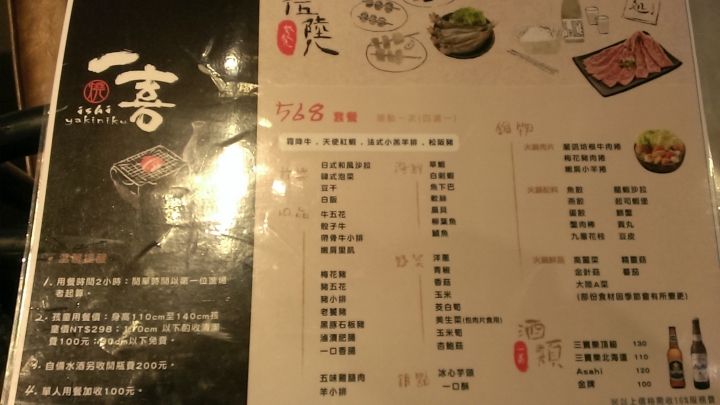 一喜
燒
ishi
yakiniku
溫馨提醒
1. 用餐時間2小時：開單時間以第一位進場
者起算。
2. 孩童用餐價：身高110cm至140cm孩
童價NT$298；110cm 以下酌收清潔
費100元；90cm以下免費。
3. 自備水酒另收開瓶費200元。
4. 單人用餐加收100元。
伍陸八
568 套餐
霜降牛．天使紅蝦．法式小羔羊排．松阪豬
日式和風沙拉
韓式泡菜
豆干
白飯
肉品
牛五花
骰子牛
帶骨牛小排
嫩肩里肌
梅花豬
豬五花
豬小排
老饕豬
黑豚石板豬
滷漬肥腸
一口香腸
五味雞腿肉
羊小排
海鮮
草蝦
白刺蝦
魚下巴
軟絲
扇貝
柳葉魚
鯛魚
野菜
洋蔥
青椒
香菇
玉米
茭白筍
美生菜(包肉片食用)
玉米筍
杏鮑菇
甜點
冰心芋頭
一口酥
鍋物
火鍋肉片
嚴選培根牛肉捲
梅花豬肉捲
嫩肩小羊捲
火鍋配料
魚餃
龍蝦沙拉
燕餃
起司蝦堡
蛋餃
蟹肉棒
貢丸
九層花枝
豆皮
火鍋鮮蔬
高麗菜
金針菇
番茄
大陸A菜
(部份食材因季節會有所變更)
酒類
三寶樂頂級 130
三寶樂北海道 110
Asahi 120
金牌 100